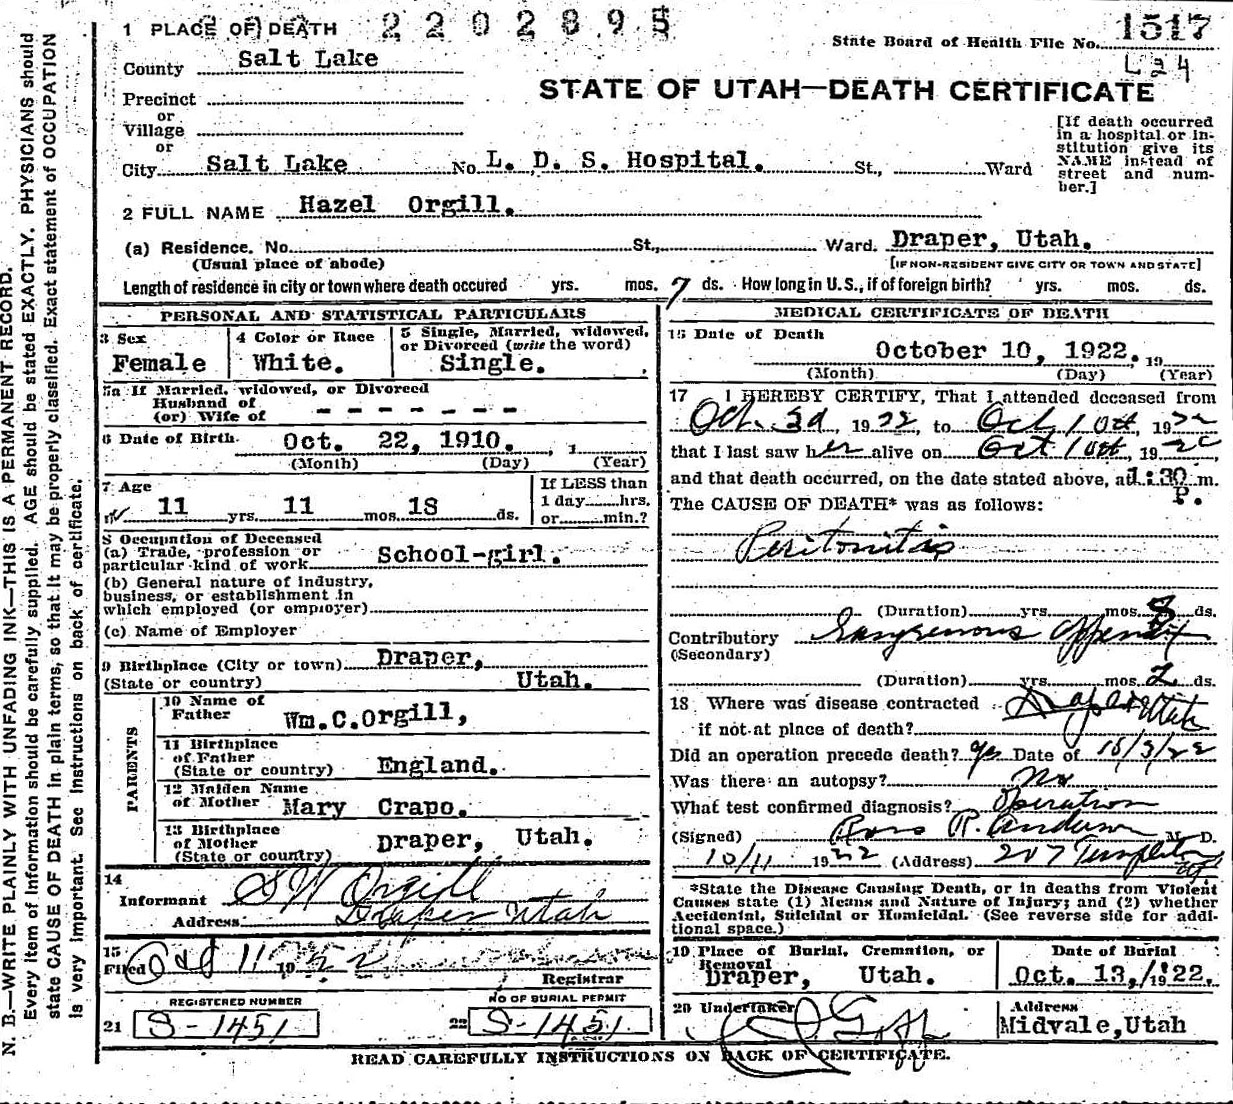 N. B.—WRITE PLAINLY WITH UNFADING INK—THIS IS A PERMANENT RECORD.
Every item of information should be carefully supplied. AGE should be stated EXACTLY. PHYSICIANS should
state CAUSE OF DEATH in plain terms, so that it may be properly classified. Exact statement of OCCUPATION
is very important. See instructions on back of certificate.
1 PLACE OF DEATH 2202895
State Board of Health File No. 1517
L 24
County Salt Lake
STATE OF UTAH—DEATH CERTIFICATE
Precinct
or
Village
or
City Salt Lake No. L. D. S. Hospital. St., Ward
[If death occurred
in a hospital or in-
stitution give its
NAME instead of
street and num-
ber.]
2 FULL NAME Hazel Orgill.
(a) Residence. No. St., Ward. Draper, Utah.
(Usual place of abode) [IF NON-RESIDENT GIVE CITY OR TOWN AND STATE]
Length of residence in city or town where death occured yrs. mos. 7 ds. How long in U. S., if of foreign birth? yrs. mos. ds.
PERSONAL AND STATISTICAL PARTICULARS
3 Sex
Female
4 Color or Race
White.
5 Single, Married, widowed,
or Divorced (write the word)
Single.
5a If Married, widowed, or Divorced
Husband of
(or) Wife of - - - - - - -
6 Date of Birth Oct. 22, 1910. , 1
(Month) (Day) (Year)
7 Age
11 yrs. 11 mos. 18 ds.
If LESS than
1 day hrs.
or min.?
8 Occupation of Deceased
(a) Trade, profession or
particular kind of work School-girl.
(b) General nature of industry,
business, or establishment in
which employed (or employer)
(c) Name of Employer
9 Birthplace (City or town) Draper,
(State or country) Utah.
PARENTS
10 Name of
Father Wm.C.Orgill,
11 Birthplace
of Father
(State or country) England.
12 Maiden Name
of Mother Mary Crapo.
13 Birthplace
of Mother
(State or country) Draper, Utah.
14
Informant S W Orgill
Address Draper Utah
15
Filed Oct 11 1922
Registrar
REGISTERED NUMBER
21 S-1451
NO OF BURIAL PERMIT
22 S-1451
MEDICAL CERTIFICATE OF DEATH
16 Date of Death
October 10, 1922. 19
(Month) (Day) (Year)
17 I HEREBY CERTIFY, That I attended deceased from
Oct. 3d, 1922, to Oct 10th, 1922
that I last saw her alive on Oct 10th, 1922
and that death occurred, on the date stated above, at 1:30 m.
P.
The CAUSE OF DEATH* was as follows:
Peritonitis
(Duration) yrs. mos. 8 ds.
Contributory Gangrenous
(Secondary)
(Duration) yrs. mos. 2 ds.
18 Where was disease contracted
if not at place of death? Draper Utah
Did an operation precede death? yes Date of 10/3/22
Was there an autopsy? No
What test confirmed diagnosis? Operation
(Signed) Ross R. Anderson M. D.
10/11 1922 (Address) 207 Templeton
*State the Disease Causing Death, or in deaths from Violent
Causes state (1) Means and Nature of Injury; and (2) whether
Accidental, Suicidal or Homicidal. (See reverse side for addi-
tional space.)
19 Place of Burial, Cremation, or
Removal
Draper, Utah.
Date of Burial
Oct. 13, 1922.
20 Undertaker
Address
Midvale,Utah
READ CAREFULLY INSTRUCTIONS ON BACK OF CERTIFICATE.